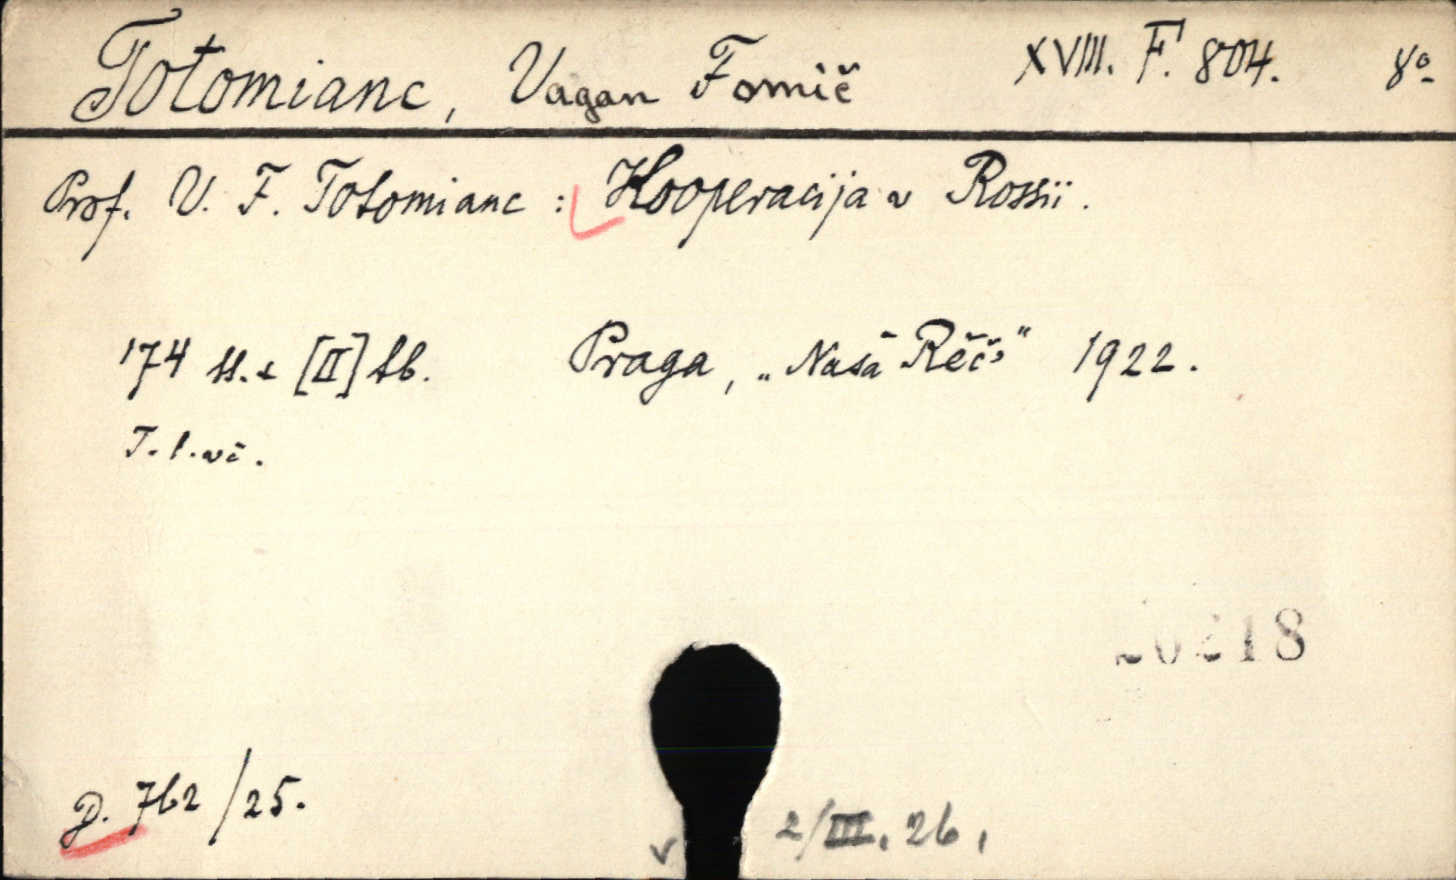 Totomianc, Vagan Fomič XVIII. F. 804. 8°
Prof. V. F. Totomianc: Kooperacija v Rossii.
174 ss. + [II] bb. Praga, „Naša Rěč“ 1922.
20218
D. 762/25.
2/III. 26.